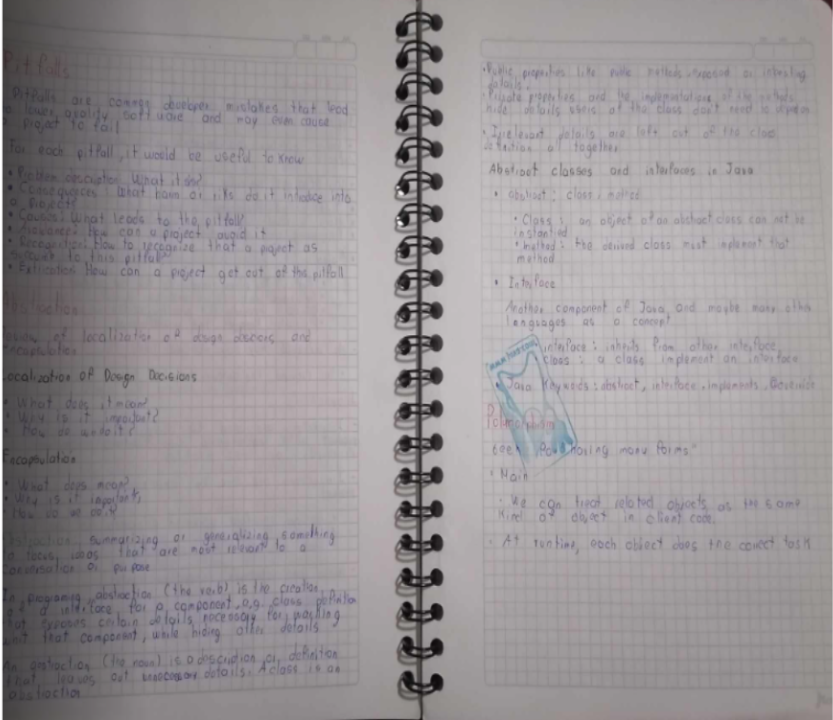 Pitfalls
Pitfalls are common developer mistakes that lead
to lower quality software and may even cause
a project to fail
For each pitfall, it would be useful to know
• Problem description What it is
• Consequences: What harm or risks do it introduce into
a project?
• Causes: What leads to the pitfall?
• How can a project avoid it
• Recognition: How to recognize that a project as
to this pitfall
• Extrication How can a project get out of the pitfall
Abstraction
Review of localization of design decisions and
encapsulation
Localization of Design Decisions
• What does it mean?
• Why is it important?
• How do we do it?
Encapsulation
• What does mean?
• Why is it important
• How do we do it?
Abstraction, summarizing or generalizing something
to focus, ideas that are most relevant to a
conversation or purpose
In programing abstraction (the verb) is the creation
of a interface for a component, e.g. class definition
that exposes certain details necessary for
that component, while hiding other details
An abstraction (the noun) is a description or definition
that leaves out unnecessary details. A class is an
abstraction
• Public properties like public methods exposed or interesting
details.
• Private properties and the implementations of the methods
hide details users of the class don't need to
• Irrelevant details are left out of the class
definition all together
Abstract classes and interfaces in Java
• abstract: class, method
• Class: an object of an abstract class can not be
• method: the derived class must implement that
method
• Interface
Another component of Java, and maybe many other
languages as a concept
interface: inherits from other interface
class: a class implement an interface
• Java Keywords: abstract, interface, implements,
Polymorphism
having many forms"
• Main
• We can treat related objects as the same
kind of object in client code.
• At runtime, each object does the correct task